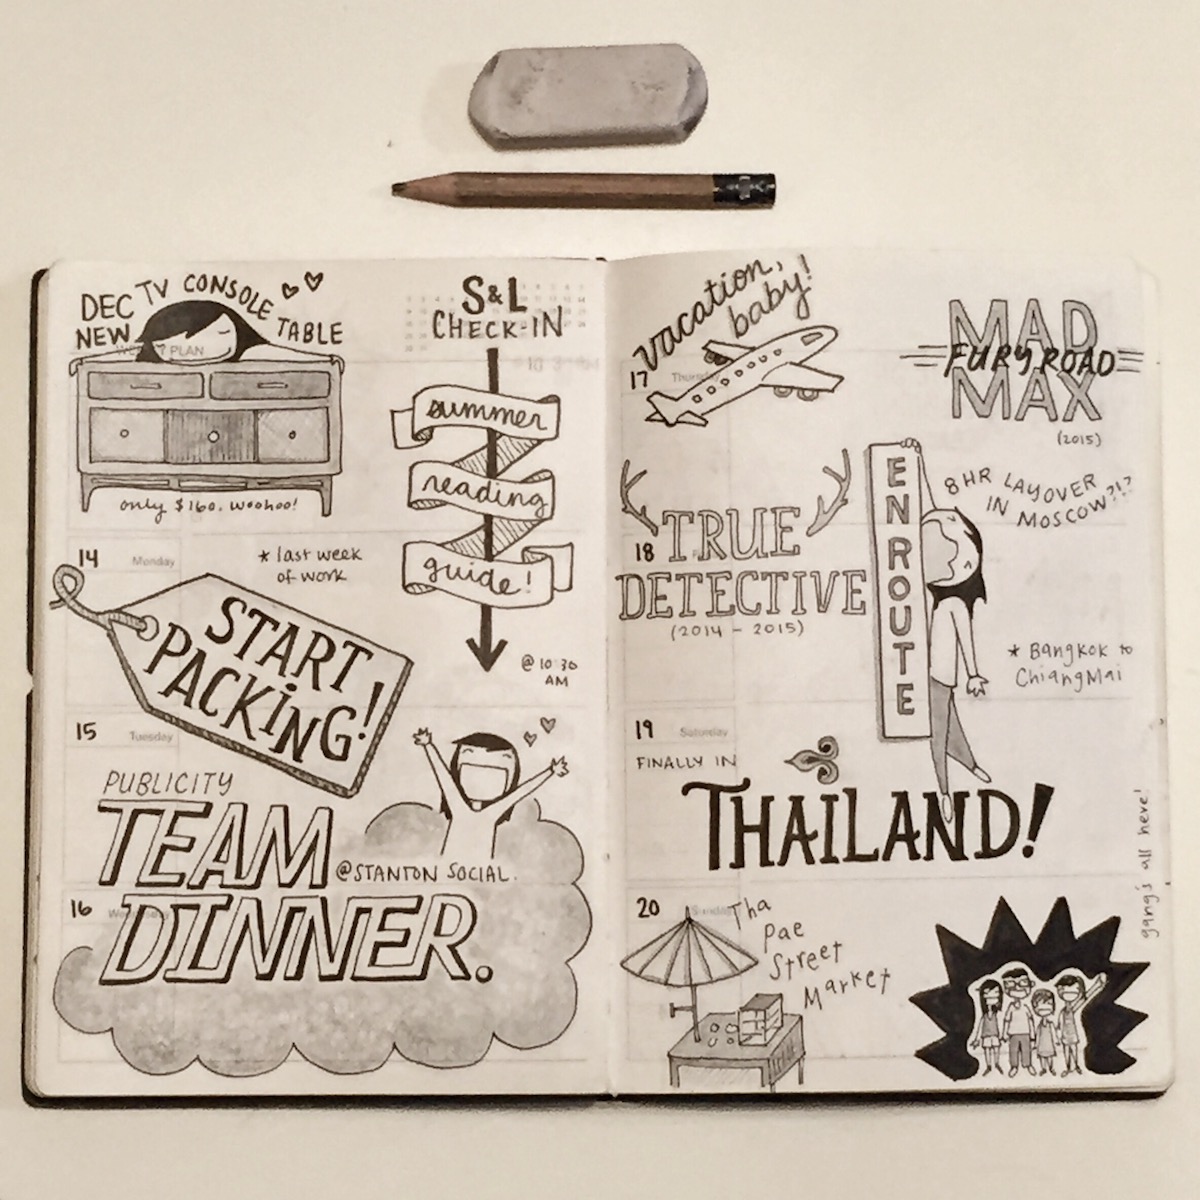 DEC
NEW
TV CONSOLE
TABLE
PLAN
only $160. woohoo!
S&L
CHECK-IN
summer
reading
guide!
@ 10:30
AM
14
Monday
* last week
of work
START
PACKING!
15
Tuesday
PUBLICITY
TEAM
@STANTON SOCIAL.
16
Wednesday
DINNER.
vacation,
baby!
17
Thursday
MAD
FURY ROAD
MAX
(2015)
18
TRUE
DETECTIVE
(2014 - 2015)
ENROUTE
8HR LAYOVER
IN MOSCOW?!?
* Bangkok to
ChiangMai
19
Saturday
FINALLY IN
THAILAND!
20
Sunday
Tha
Pae
Street
Market
gang's all here!